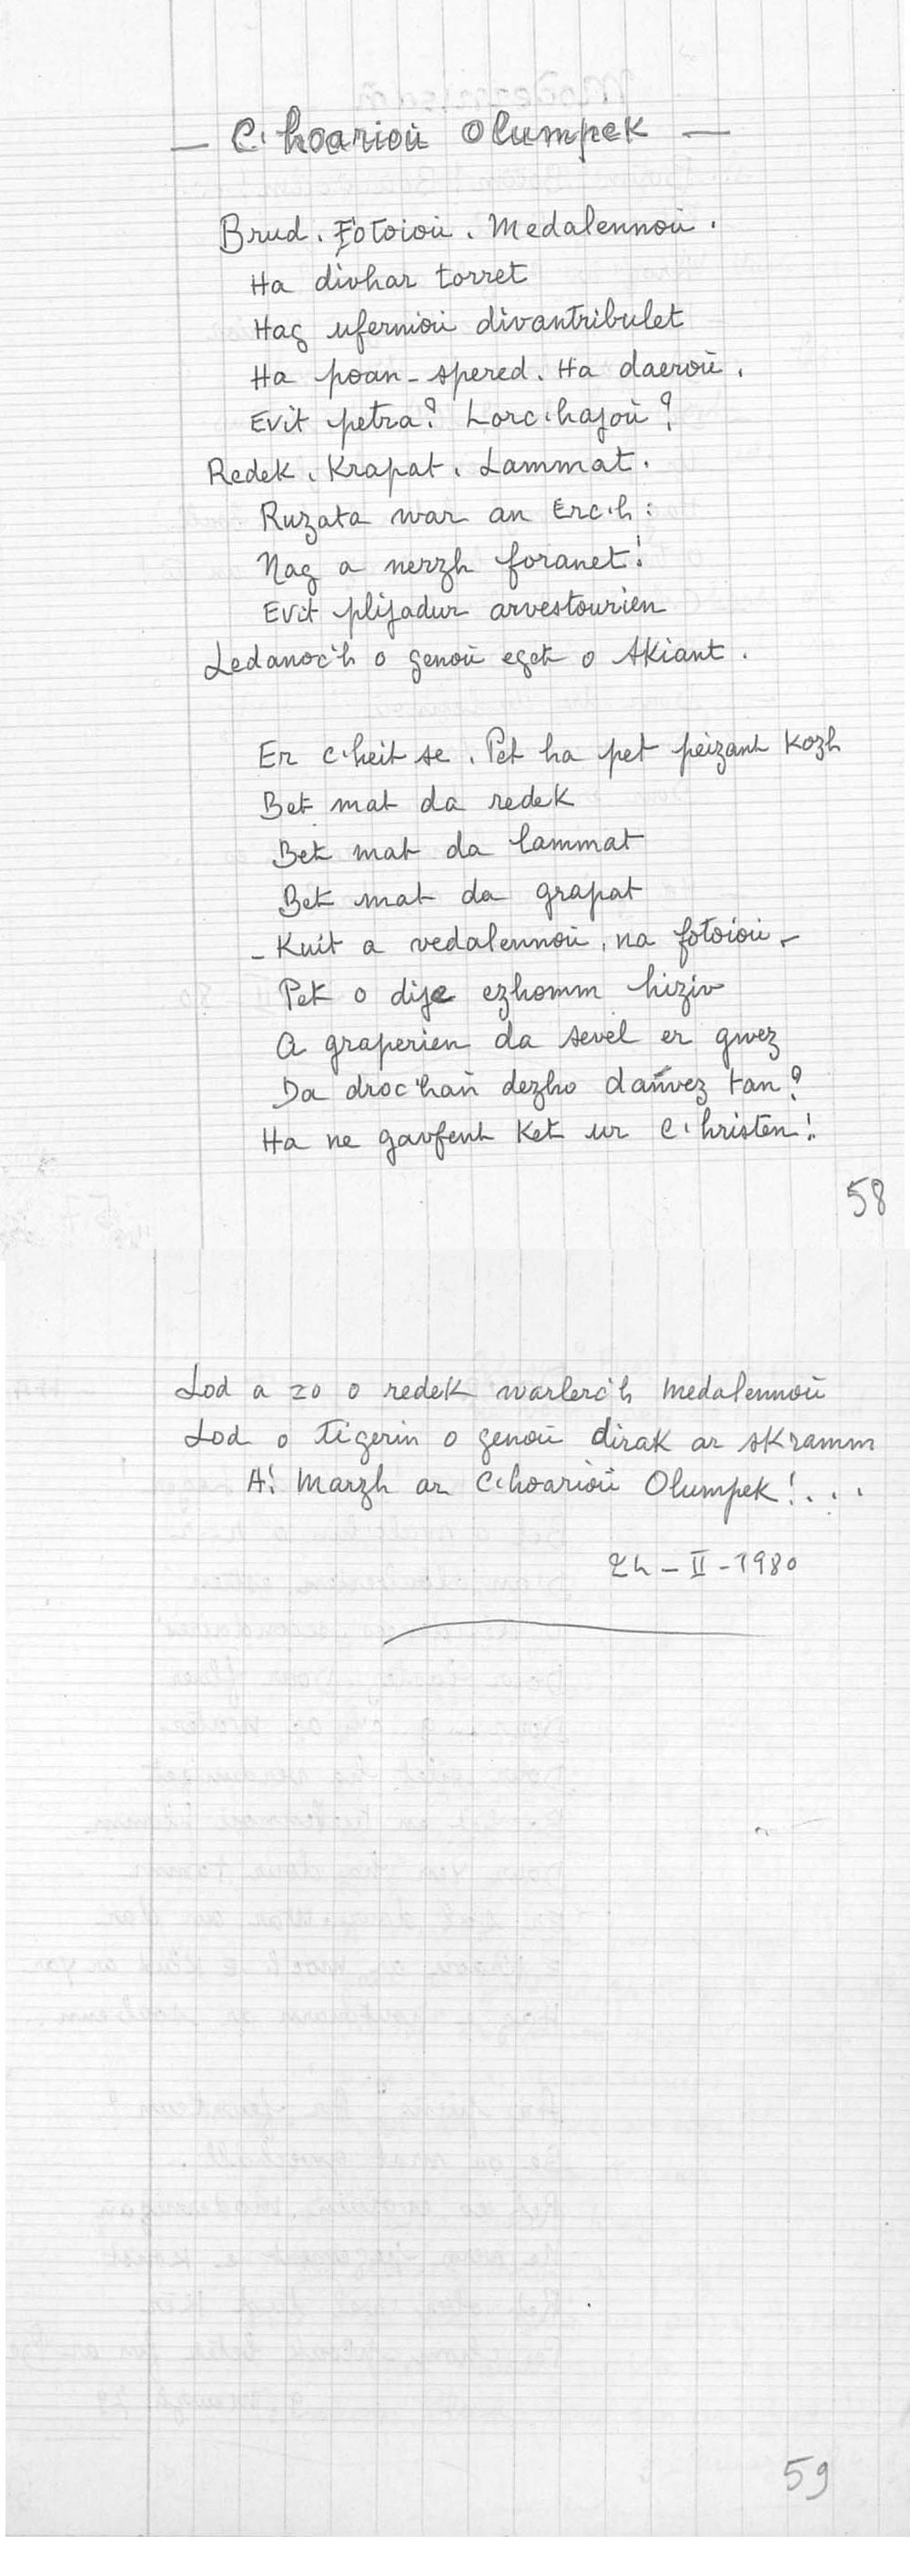 — C'hoarioù Olumpek —
Brud. Fotoioù. Medalennoù.
Ha divhar torret
Hag ufernioù divantribulet
Ha poan-spered. Ha daeroù.
Evit petra? Lorc'hajoù?
Redek. Krapat. Lammat.
Ruzata war an Erc'h:
Nag a nerzh foranet!
Evit plijadur arvestourien
Ledanoc'h o genoù eget o skiant.
Er c'heit se. Pet ha pet peizant kozh
Bet mat da redek
Bet mat da lammat
Bet mat da grapat
- Kuit a vedalennoù, na fotoioù -
Pet o dije ezhomm hiziv
A graperien da sevel er gwez
Da droc'hañ dezho dañvez tan?
Ha ne gavfent ket ur C'hristen!
58
Lod a zo o redek warlerc'h medalennoù
Lod o tigeriñ o genoù dirak ar skramm
A! Marzh ar C'hoarioù Olumpek!...
24-II-1980
59